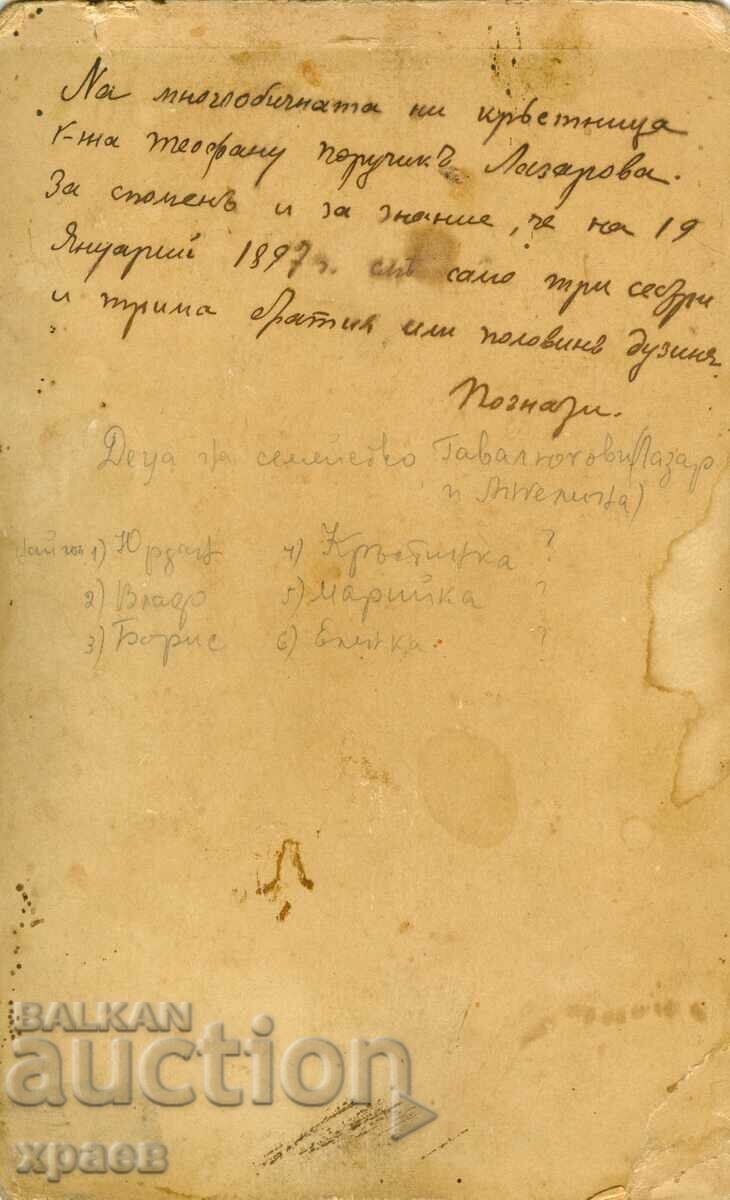 На многообичната ни кръстница
г-жа Теофану поручикъ Лазарова.
За споменъ и за знание, че на 19
Януарий 1897 г. сме само три сестри
и трима братия или половинъ дузина.
Познази.
Деца на семейство Гавалюгови (Лазар
и Ангелина)
1) Юрдан 4) Кръстинка ?
2) Владо 5) Марийка ?
3) Борис 6) Еленка ?
BALKAN
auction
храев